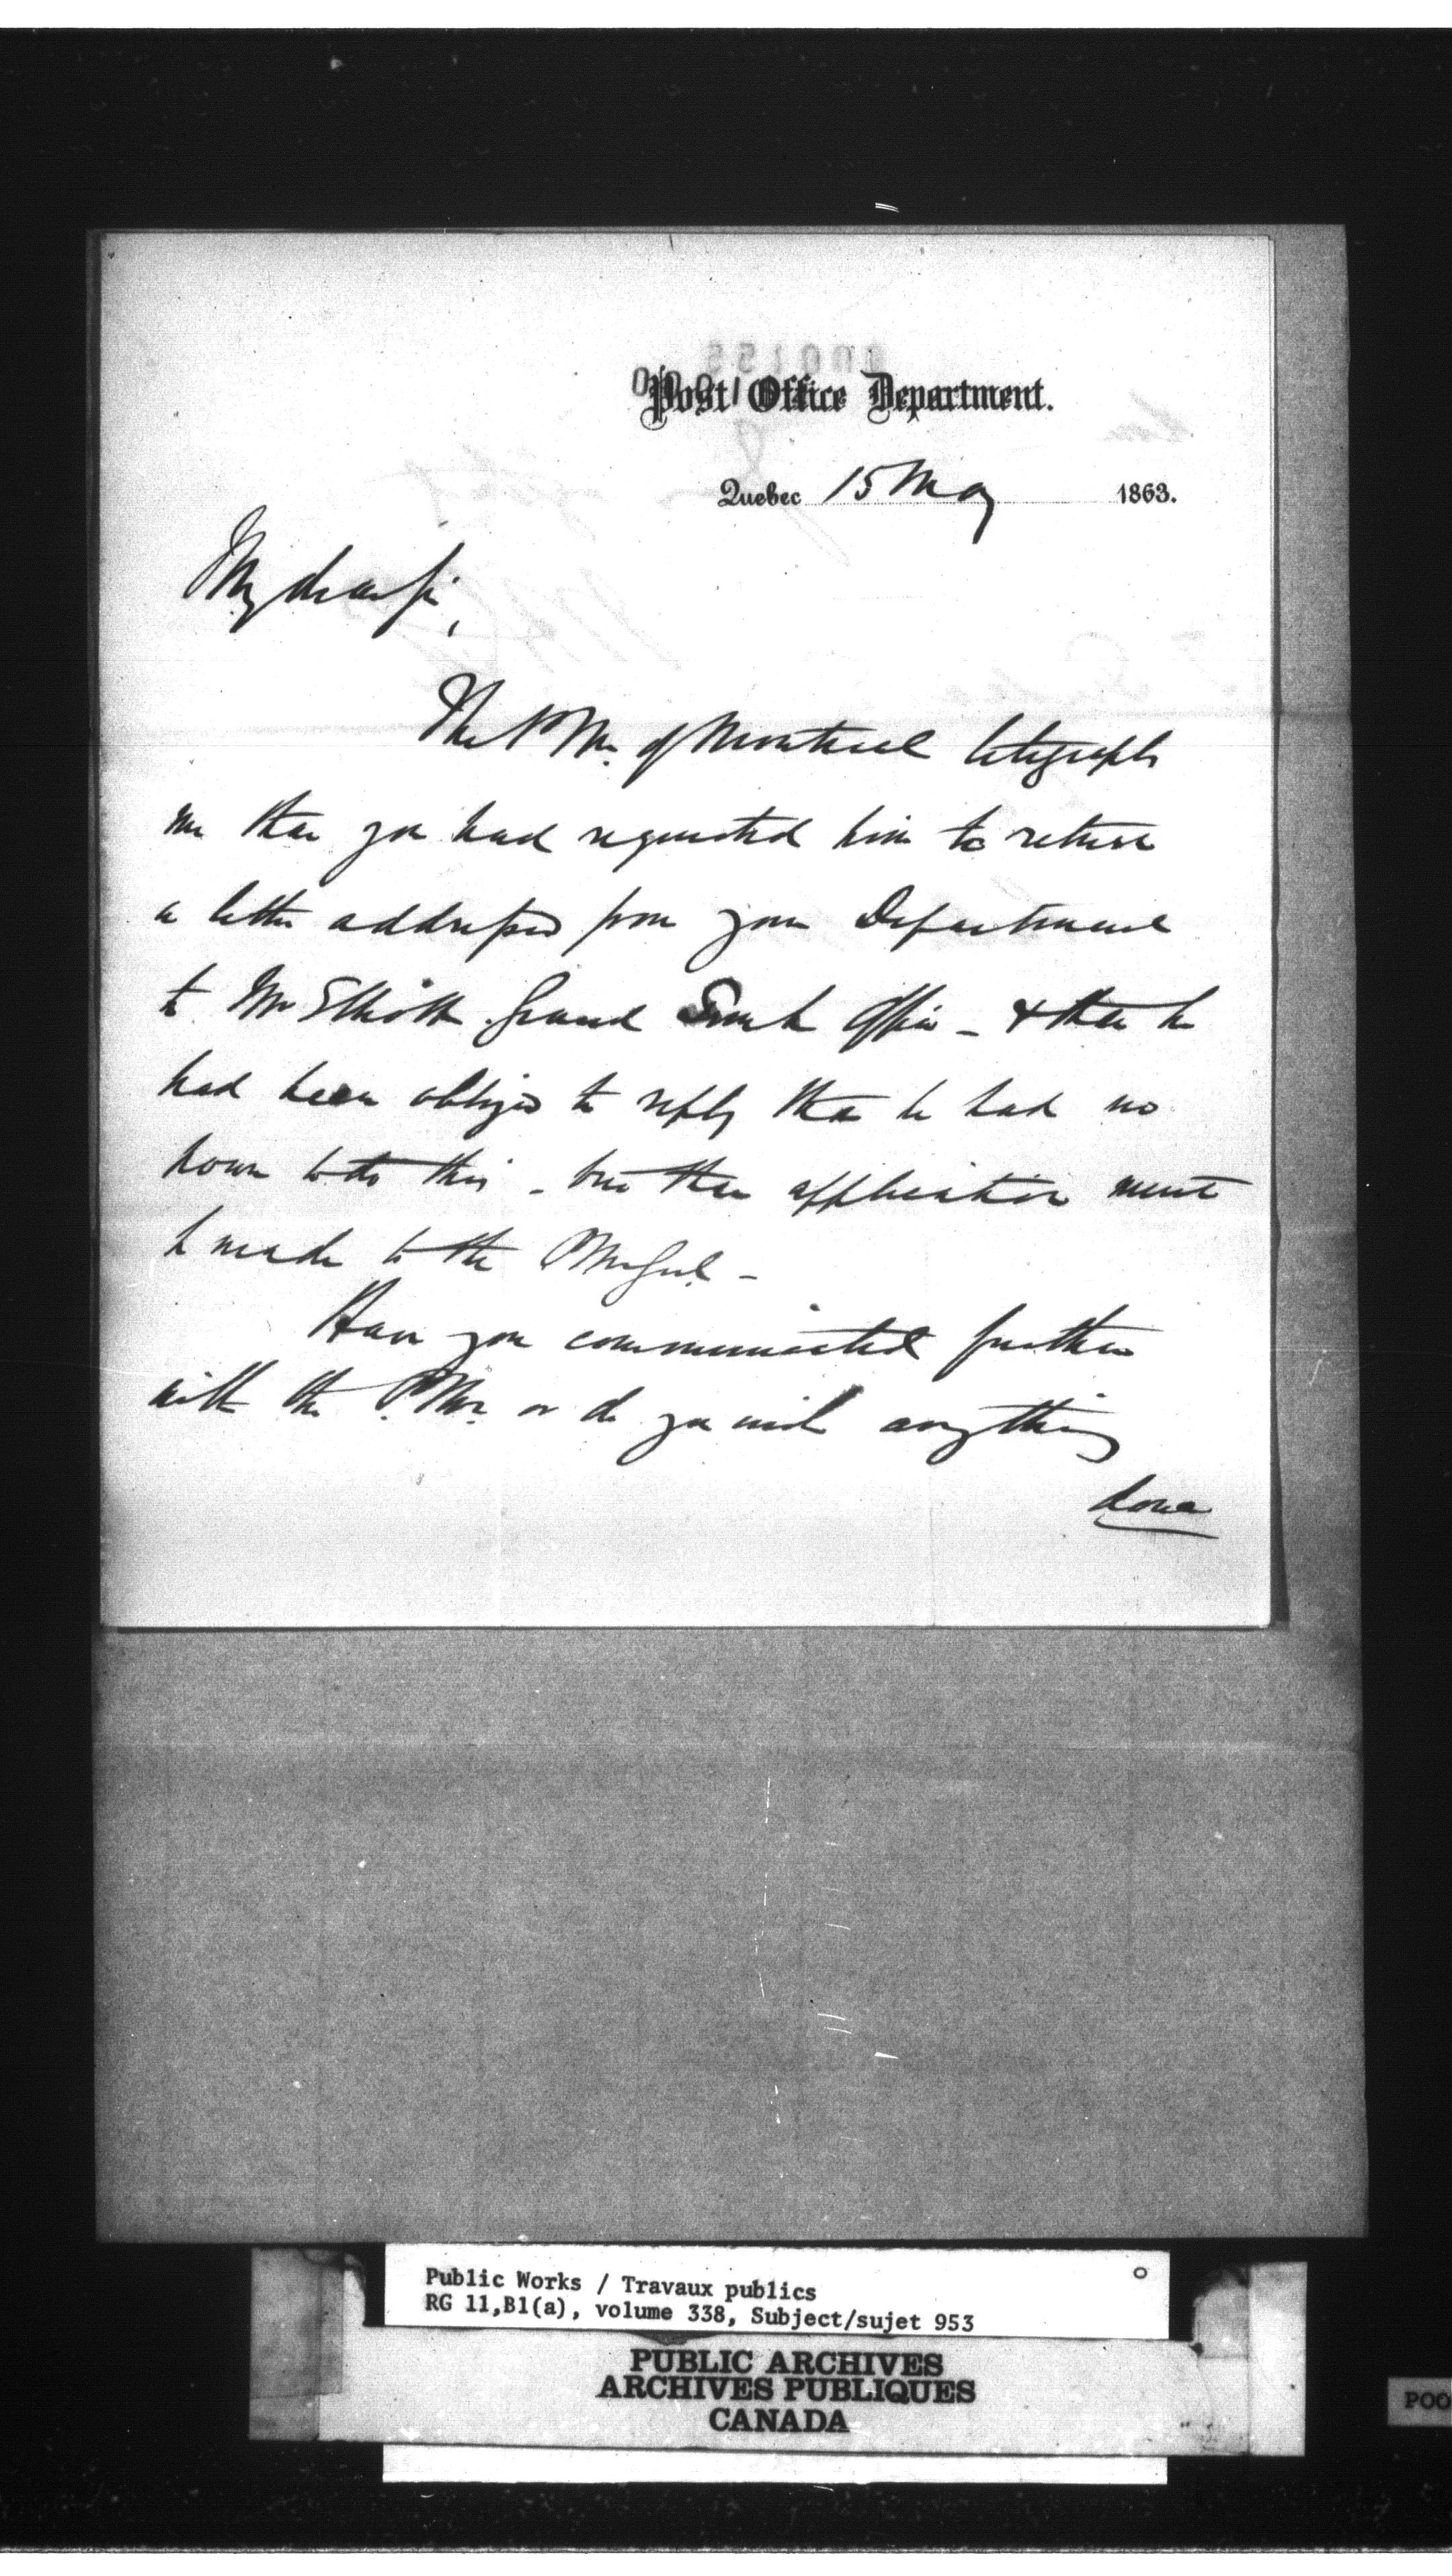 Post Office Department.
Quebec 15 May 1863.
My dear Sir,
The P.Mr. of Montreal telegraphs
me that you had requested him to return
a letter addressed from your Department
to Mr Elliott Grand Trunk Office - & that he
had been obliged to reply that he had no
power to do this - but that application must
be made to the PMr Genl. -
Have you communicated further
with the P.Mr. or do you wish anything
done
Public Works / Travaux publics
RG 11,B1(a), volume 338, Subject/sujet 953
PUBLIC ARCHIVES
ARCHIVES PUBLIQUES
CANADA
POO